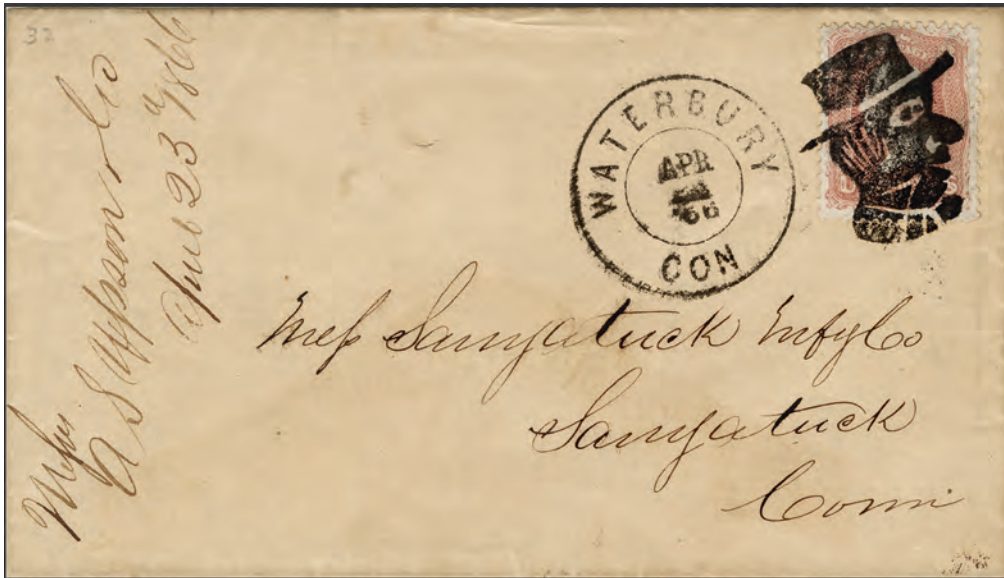 32
A S Upson & Co
April 23d 1866
WATERBURY
APR
'66
CON
Mess Saugatuck Mfg Co
Saugatuck
Conn